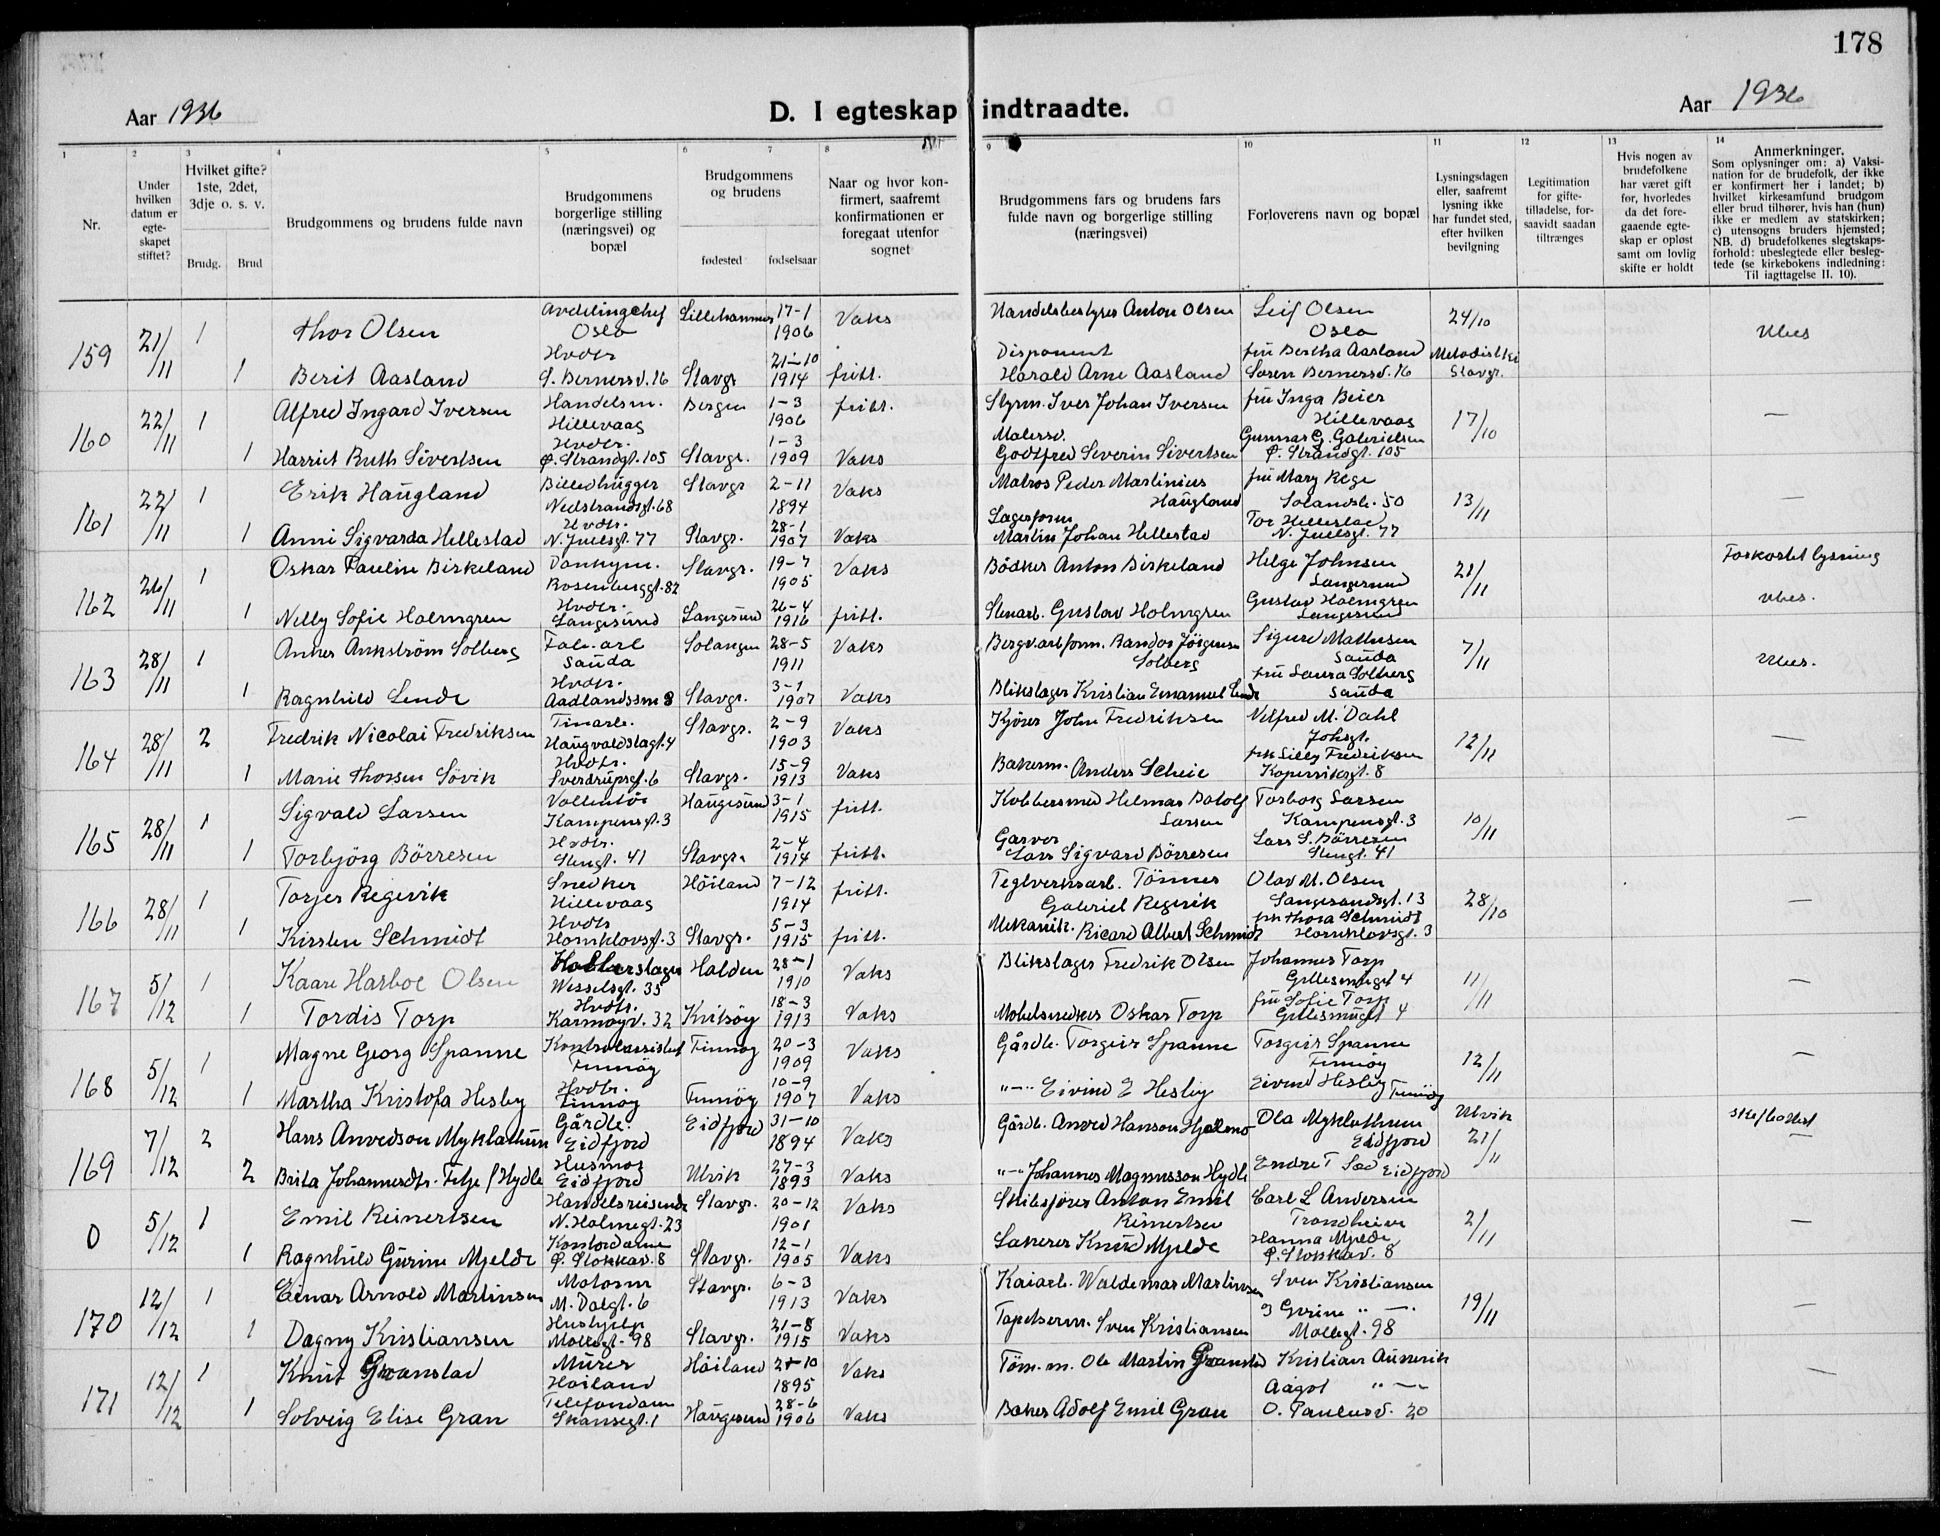 178
Aar 1936
D. I egteskap indtraadte.
Aar 1936
1 2 3 4 5 6 7 8 9 10 11 12 13 14
Nr.
Under hvilken datum er egte-skapet stiftet?
Hvilket gifte? 1ste, 2det, 3dje o. s. v.
Brudg. Brud
Brudgommens og brudens fulde navn
Brudgommens borgerlige stilling (næringsvei) og bopæl
Brudgommens og brudens
fødested fødselsaar
Naar og hvor kon-firmert, saafremt konfirmationen er foregaat utenfor sognet
Brudgommens fars og brudens fars fulde navn og borgerlige stilling (næringsvei)
Forloverens navn og bopæl
Lysningsdagen eller, saafremt lysning ikke har fundet sted, efter hvilken bevilgning
Legitimation for gifte-tilladelse, for-saavidt saadan tiltrænges
Hvis nogen av brudefolkene har været gift før, hvorledes da det fore-gaaende egte-skap er opløst samt om lovlig skifte er holdt
Anmerkninger.
Som oplysninger om: a) Vaksi-nation for de brudefolk, der ikke er konfirmert her i landet; b) hvilket kirkesamfund brudgom eller brud tilhører, hvis han (hun) ikke er medlem av statskirken; c) utensogns bruders hjemsted; NB. d) brudefolkenes slegtskaps-forhold: ubeslegtede eller besleg-tede (se kirkebokens indledning: Til iagttagelse II. 10).
159 21/11 1 Thor Olsen Avdelingchef Oslo Lillehammer 17-1 1906 Vaks Handelsbestyrer Anton Olsen Leif Olsen Oslo 24/10 Ubes
1 Berit Aasland Hvdtr S. Bernersv. 16 Stavgr 21-10 1914 fritt. Disponent Harald Arne Aasland fru Bertha Aasland Søren Bernersv. 16 Metodistki Stavgr.
160 22/11 1 Alfred Ingard Iversen Handelsm. Hillevaag Bergen 1-3 1906 fritt. Styrm. Iver Johan Iversen fru Inga Beier Hillevaag 17/10 —
1 Harriet Ruth Sivertsen Hvdtr. Ø. Strandgt. 105 Stavgr. 1-3 1909 Vaks Malersv. Godtfred Severin Sivertsen Gunnar G. Gabrielsen Ø. Strandgt. 105
161 22/11 1 Erik Haugland Billedhugger Nedstrandsgt. 68 Stavgr 2-11 1894 Vaks Matros Peder Martinius Haugland fru Mary Rege Solandsb. 50 13/11 —
1 Anni Sigvarda Hellestad Hvdtr. N. Juelsgt. 77 Stavgr. 28-1 1907 Vaks Lagerform Martin Johan Hellestad Tor Hellestad N. Juelsgt. 77
162 26/11 1 Oskar Paulin Birkeland Donkym. Rosenberggt. 82 Stavgr. 19-7 1905 Vaks Bödker Anton Birkeland Helge Johnsen Langesund 21/11 Forkortet lysning
1 Nelly Sofie Holmgren Hvdtr. Langesund Langesund 26-4 1916 fritt. Stenarb. Gustav Holmgren Gustav Holmgren Langesund Ubes.
163 28/11 1 Annar Ankström Solberg Fab. arb Sauda Solangen 28-5 1911 Vaks Bergvarkform. Randor Jörgensen Solberg Sigurd Mathisen Sauda 7/11 Ubes.
1 Ragnhild Lende Hvdtr. Aadlandssm 8 Stavgr. 3-1 1907 Vaks Blikslager Kristian Emanuel Lende fru Laura Solberg Sauda
164 28/11 2 Fredrik Nicolai Fredriksen Tinarb. Haugvaldstagt. 4 Stavgr. 2-9 1903 Vaks Kjörer John Fredriksen Vilfred M. Dahl Joksgt. 12/11 —
1 Marie Thorsen Sövik Hvdtr. Sverdrupsgt. 6 Stavgr. 15-9 1913 Vaks Bakerm. Anders Scheie frk Lilly Fredriksen Kopervikgt. 8
165 28/11 1 Sigvald Larsen Vollentör Kampensgt. 3 Haugesund 3-1 1915 fritt. Kobbersmed Helmar Botolf Larsen Torborg Larsen Kampensgt. 3 10/11 —
1 Torbjörg Börresen Hvdtr. Stengt. 41 Stavgr. 2-4 1914 fritt. Garver Lars Sigvard Börresen Lars S. Börresen Stengt. 41
166 28/11 1 Torjer Regevik Snedker Hillevaag Höiland 7-12 1914 fritt. Teglverksarb. Tönnes Gabriel Regevik Olav M. Olsen Langesandsgt. 13 28/10 —
1 Kirsten Schmidt Hvdtr Hornklovsgt. 3 Stavgr. 5-3 1915 fritt. Mekanik. Ricard Albert Schmidt frk Thora Schmidt Hornklovsgt. 3
167 5/12 1 Kaare Harboe Olsen Kobberslager Wesselsgt. 35 Halden 28-1 1910 Vaks Blikslager Fredrik Olsen Johannes Torp Grillesmuget 4 11/11 —
1 Tordis Torp Hvdtr. Karmöyv. 32 Kvitsöy 18-3 1913 Vaks Møbelsnedker Oskar Torp fru Sofie Torp Grillesmuget 4
168 5/12 1 Magne Georg Spanne Kontrolassistent Finnöy Finnöy 20-3 1909 Vaks Gårdb. Torgeir Spanne Torgeir Spanne Finnöy 12/11 —
1 Martha Kristofa Hesby Hvdtr. Finnöy Finnöy 10-9 1907 Vaks "—" Eivind E Hesby Eivind Hesby Finnöy
169 7/12 2 Hans Anvedson Myklathun Gårdb. Eidfjord Eidfjord 31-10 1894 Vaks Gårdb. Anved Hanson Hjelmo Ola Myklathun Eidfjord Ulvik 21/11 —
2 Brita Johannesdtr. Felje f Hydle Husmor Eidfjord Ulvik 27-3 1893 Vaks "— Johannes Magnusson Hydle Endre T Sæ Eidfjord
0 5/12 1 Emil Reinertsen Handelsreisende N. Holmegt. 23 Stavgr. 20-12 1901 Vaks Skibsförer Anton Emil Reinertsen Carl L Andersen Trondheim 2/11 —
1 Ragnhild Gurine Mjelde Kontordame Ø. Stokkav. 8 Stavgr. 12-1 1905 Vaks Lakerer Knud Mjelde Hanna Mjelde Ø. Stokkav. 8
170 12/12 1 Einar Arnold Martinsen Matom M. Dalgt. 6 Stavgr. 6-3 1913 Vaks Kaiarb. Waldemar Martinsen Sven Kristiansen 19/11 —
1 Dagny Kristiansen Hushjelp Møllegt. 98 Stavgr. 21-8 1915 Vaks Tapetserm. Sven Kristiansen og Gurine "—. Møllegt. 98
171 12/12 1 Knut Granstad Murer Höiland Höiland 2-10 1895 Vaks Töm. m. Ole Martin Granstad Kristian Aunevik —
1 Solveig Elise Gran Telefondam Skansegt. 1 Haugesund 28-6 1906 Vaks Baker Adolf Emil Gran Aagot "— O. Paulusv. 20